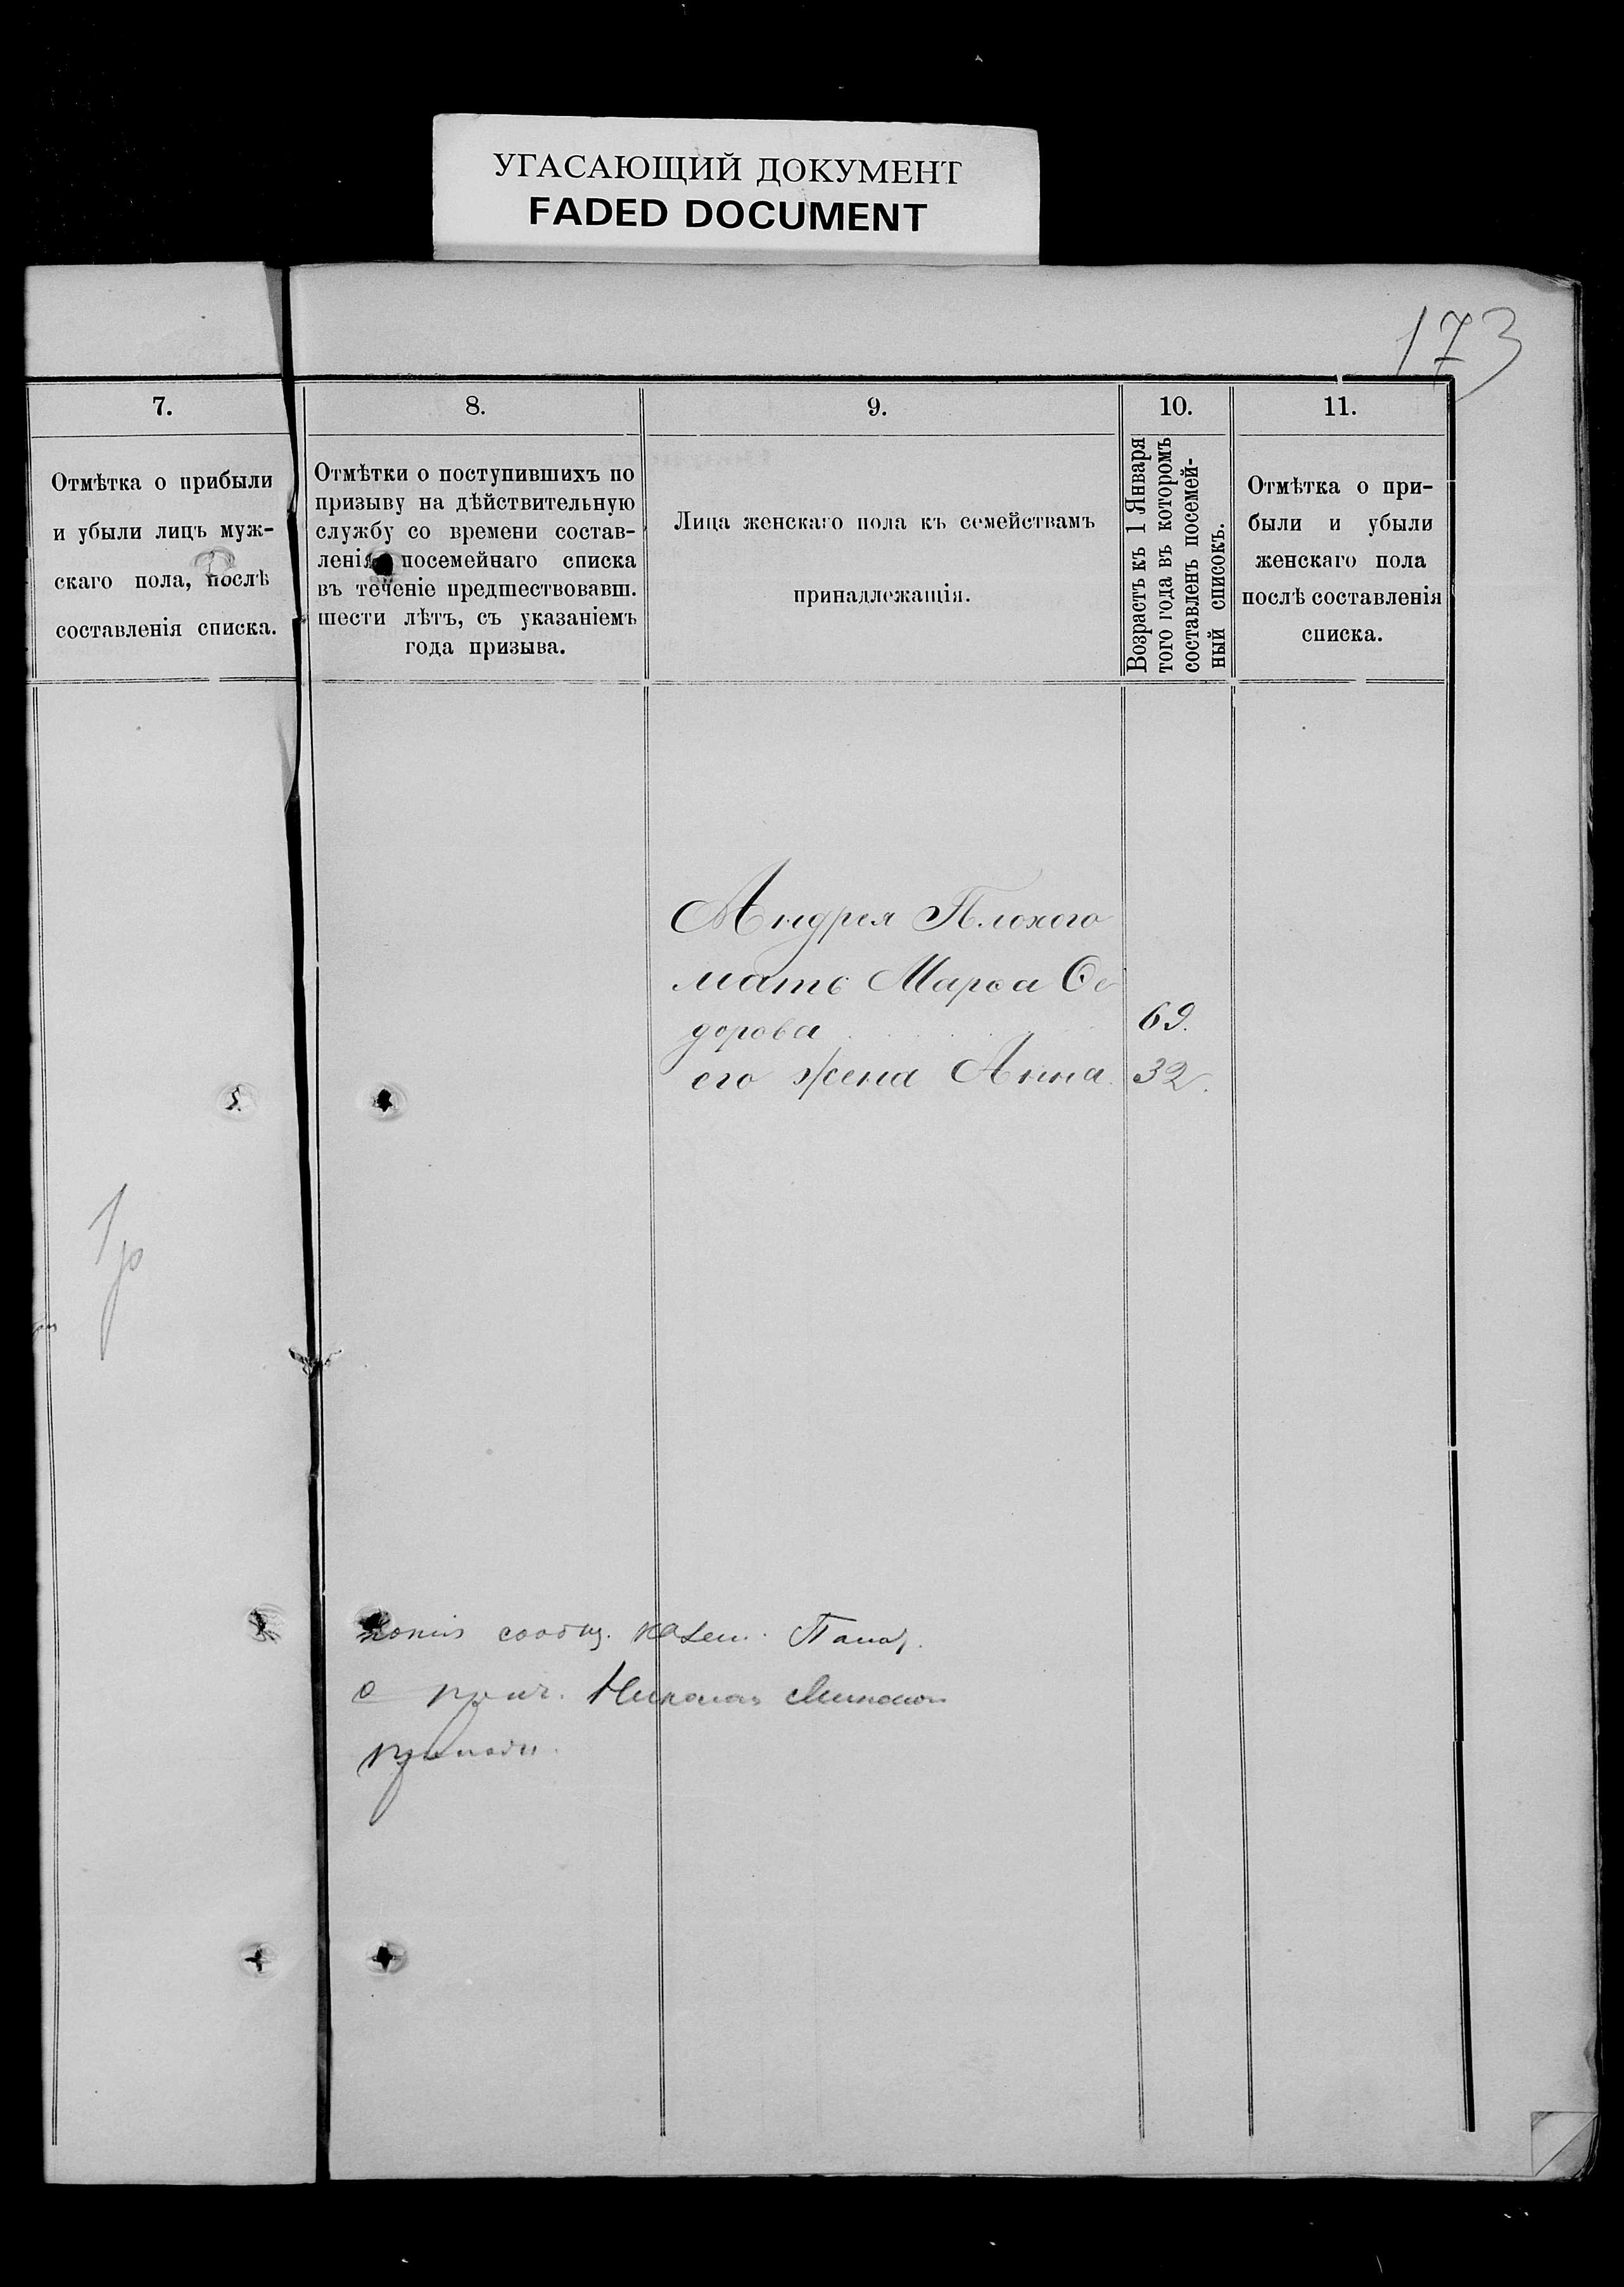 УГАСАЮЩИЙ ДОКУМЕНТ
FADED DOCUMENT
173
7.
8.
9.
10.
11.
Отмѣтка о прибыли
и убыли лицъ муж-
скаго пола, послѣ
составленія списка.
Отмѣтки о поступившихъ по
призыву на дѣйствительную
службу со времени состав-
ленія посемейнаго списка
въ теченіе предшествовавш.
шести лѣтъ, съ указаніемъ
года призыва.
Лица женскаго пола къ семействамъ
принадлежащія.
Возрастъ къ 1 Января
того года въ которомъ
составленъ посемей-
ный списокъ.
Отмѣтка о при-
были и убыли
женскаго пола
послѣ составленія
списка.
Андрея Плохого
мать Марѳа Ѳе
дорова 69.
его жена Анна 32.
сообщ.
Николая